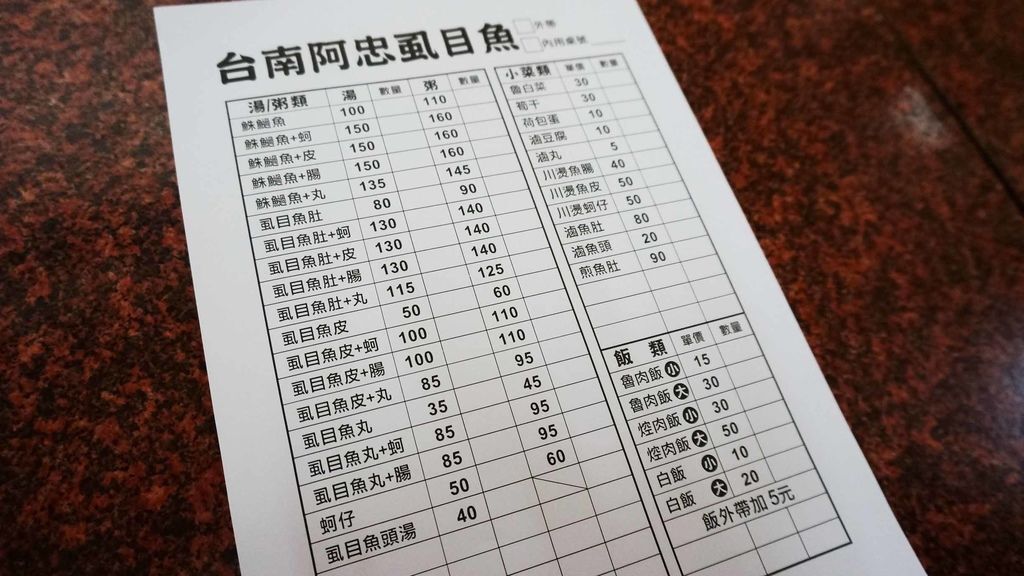 台南阿忠虱目魚
□外帶
□內用桌號
湯/粥類 湯 數量 粥 數量
鮢鮸魚 100 110
鮢鮸魚+蚵 150 160
鮢鮸魚+皮 150 160
鮢鮸魚+腸 150 160
鮢鮸魚+丸 135 145
虱目魚肚 80 90
虱目魚肚+蚵 130 140
虱目魚肚+皮 130 140
虱目魚肚+腸 130 140
虱目魚肚+丸 115 125
虱目魚皮 50 60
虱目魚皮+蚵 100 110
虱目魚皮+腸 100 110
虱目魚皮+丸 85 95
虱目魚丸 35 45
虱目魚丸+蚵 85 95
虱目魚丸+腸 85 95
蚵仔 50 60
虱目魚頭湯 40
小菜類 單價 數量
魯白菜 30
筍干 30
荷包蛋 10
滷豆腐 10
滷丸 5
川燙魚腸 40
川燙魚皮 50
川燙蚵仔 50
滷魚肚 80
滷魚頭 20
煎魚肚 90
飯類 單價 數量
魯肉飯 小 15
魯肉飯 大 30
焢肉飯 小 30
焢肉飯 大 50
白飯 小 10
白飯 大 20
飯外帶加5元